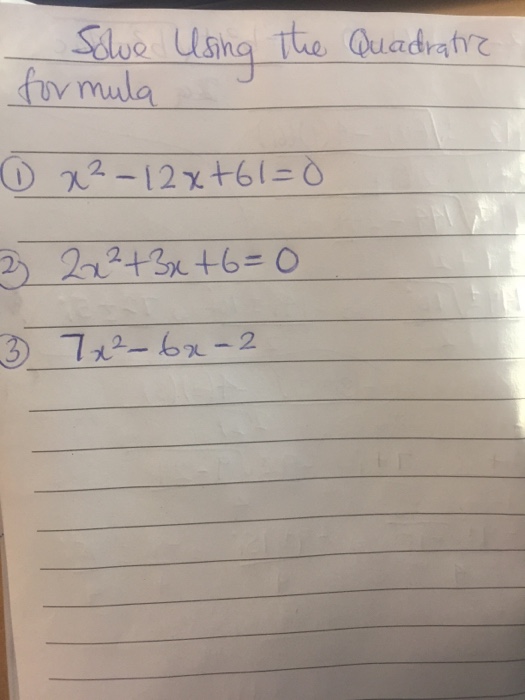 Solve Using the Quadratic
formula
① x² - 12x + 61 = 0
② 2x² + 3x + 6 = 0
③ 7x² - 6x - 2